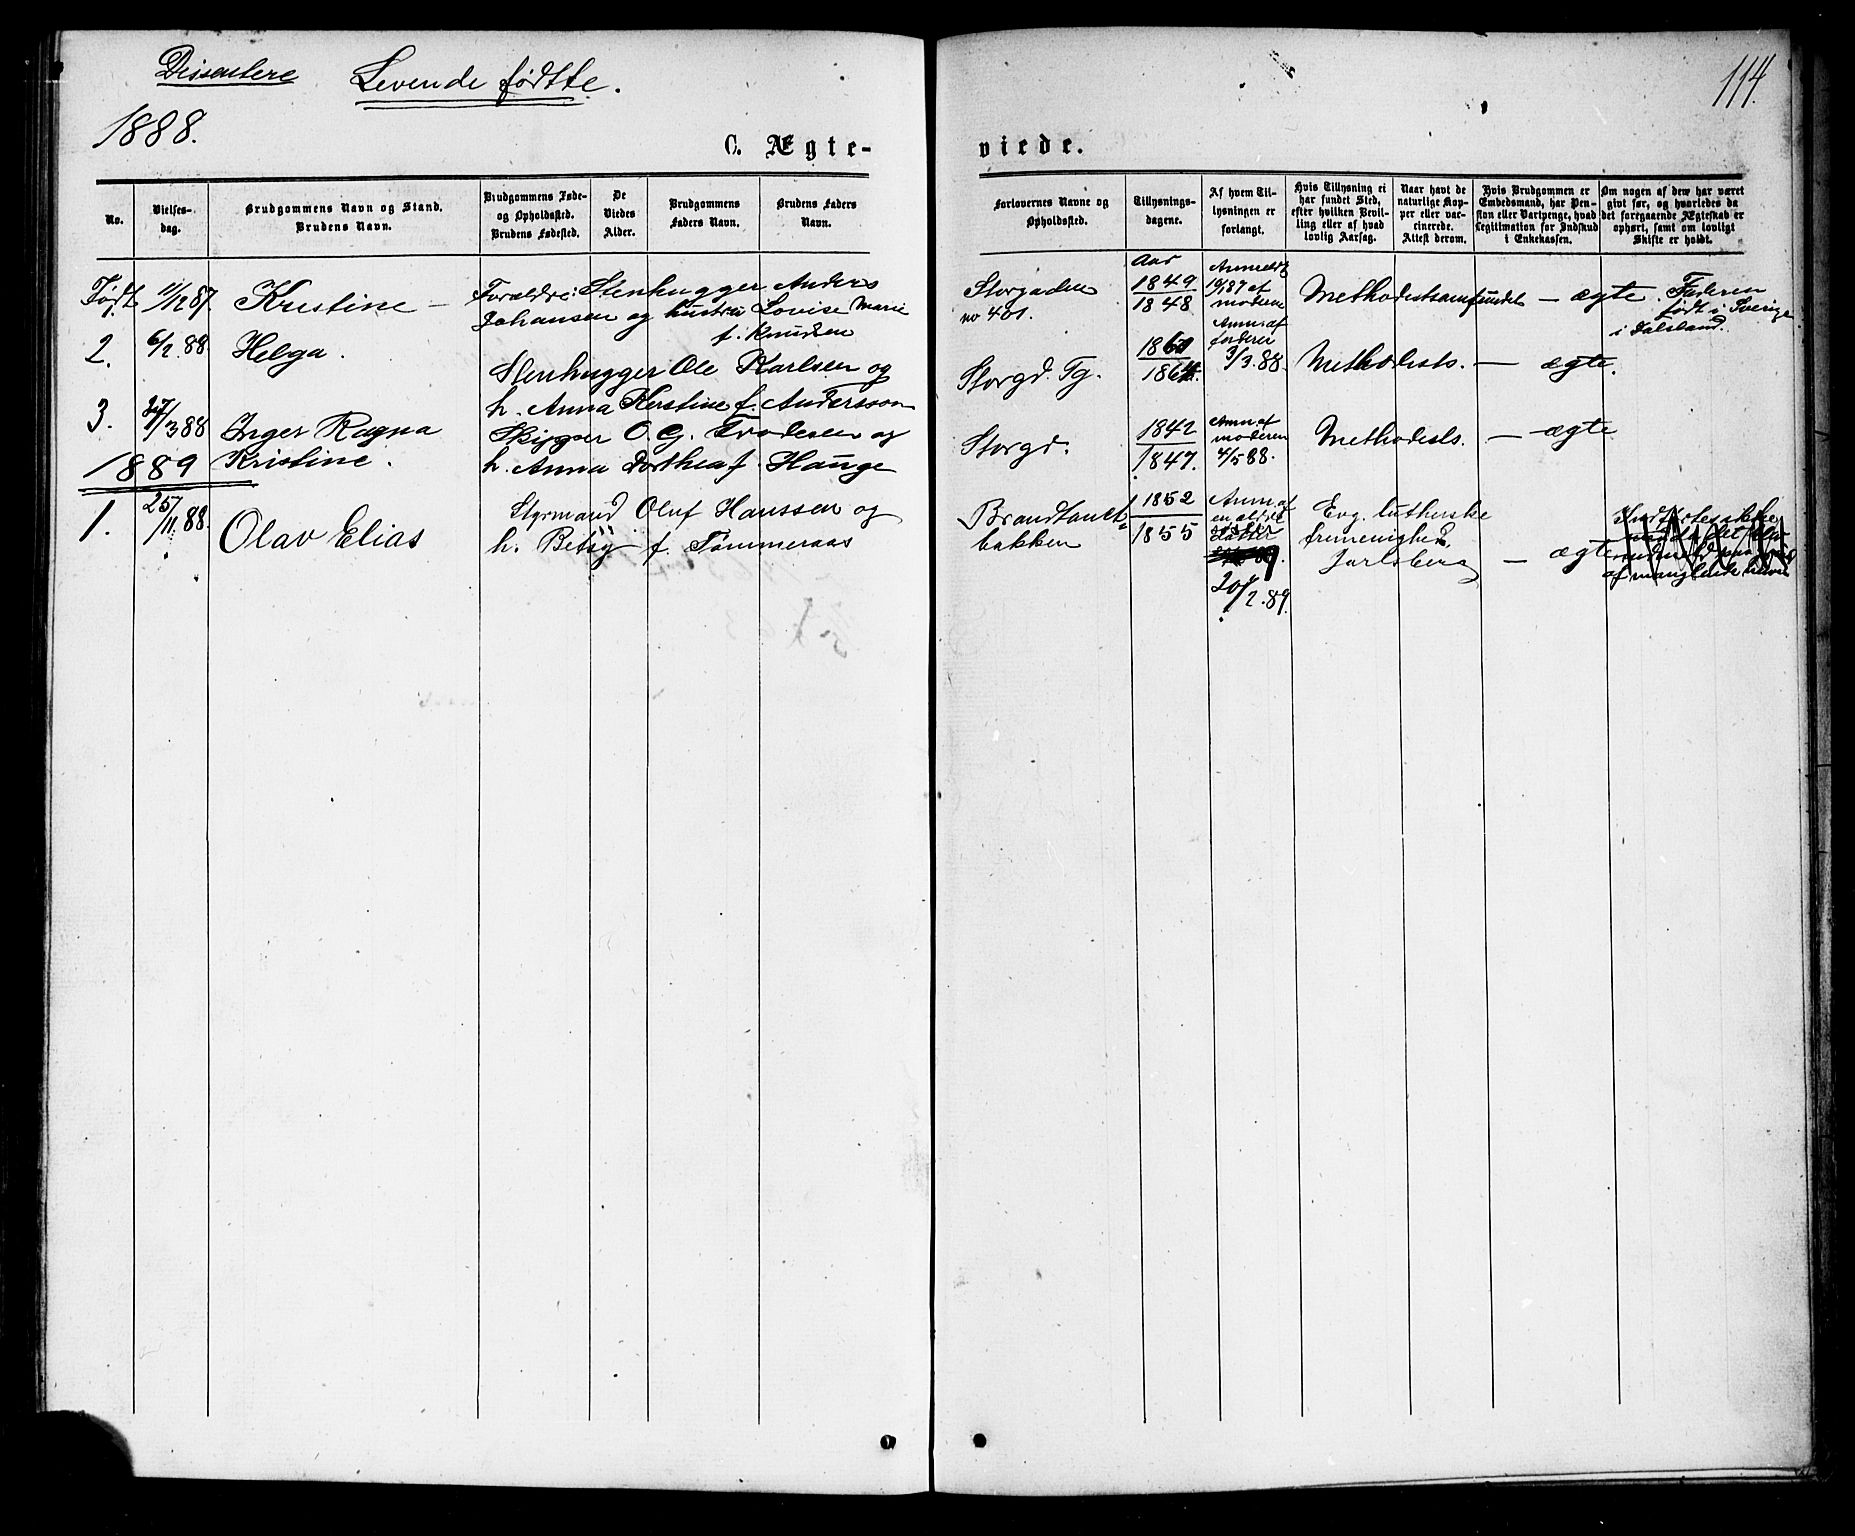 Dissentere Levende fødtte.
114.
1888.
C. Ægte-
viede.
No.
Vielses-
dag.
Brudgommens Navn og Stand.
Brudens Navn.
Brudgommens Føde-
og Opholdssted.
Brudens Fødested.
De
Viedes
Alder.
Brudgommens
Faders Navn.
Brudens Faders
Navn.
Forlovernes Navne og
Opholdssted.
Tillysnings-
dagene.
Af hvem Til-
lysningen er
forlangt.
Hvis Tillysning ei
har fundet Sted,
efter hvilken Bevil-
ling eller af hvad
lovlig Aarsag.
Naar havt de
naturlige Kop-
per eller vac-
cinerede.
Attest derom.
Hvis Brudgommen er
Embedsmand, har Pen-
sion eller Vartpenge, hvad
Legitimation for Indskud
i Enkekassen.
Om nogen af dem har været
givt før, og hvorledes da
det foregaaende Ægteskab er
ophørt, samt om lovligt
Skifte er holdt.
Født
1.
11/12 87
Kristine —
Forældre: Stenhugger Anders
Johansen og hustru Lovise Marie
f. Knudsen
Storgaden
no 401.
Aar
1849
1848
Anmeldt
19/ 87 af
moderen
Methodistsamfundet — ægte.
Faderen
født i Sverige
i Dalsland.
2.
6/2.88
Helga.
Stenhugger Ole Karlsen og
h. Anna Kerstine f. Andersson
Storgd. Tg.
1864.
Anm. af
faderer
3/3.88.
Methodists. — ægte.
3.
27/3 88
Inger Ragna
Kristine.
Skipper O. G. Evodesen og
h. Anna Dorthea f. Hauge
Storgd.
1842
1847.
Anm. af
moderen
4/5 88.
Methodists. — ægte
1889
1.
25/11.88.
Olav Elias
Styrmand Oluf Hanssen og
h. Betsy f. Tømmeraas
Brandtanet-
bakken
1852
1855
Anm. af
en ældre
datter
20/2.89.
Evg. lutherske
frimenighed,
Jarlsberg — ægte
af manglende